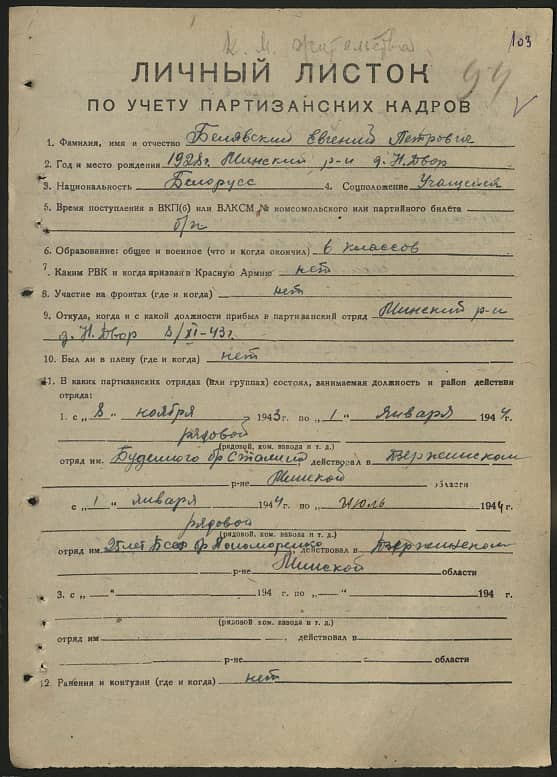 К. М. жительства
103
94
ЛИЧНЫЙ ЛИСТОК
ПО УЧЕТУ ПАРТИЗАНСКИХ КАДРОВ
1. Фамилия, имя и отчество Белявский Евгений Петрович
2. Год и место рождения 1928 г. Минский р-н д. Н.Двор
3. Национальность Белорусс 4. Соцположение Учащийся
5. Время поступления в ВКП(б) или ВЛКСМ № комсомольского или партийного билета
б/п
6. Образование: общее и военное (что и когда окончил) 6 классов
7. Каким РВК и когда призван в Красную Армию нет
8. Участие на фронтах (где и когда) нет
9. Откуда, когда и с какой должности прибыл в партизанский отряд Минский р-н
д. Н.Двор 8/XI-43 г.
10. Был ли в плену (где и когда) нет
11. В каких партизанских отрядах (или группах) состоял, занимаемая должность и район действия
отряда:
1. с „ 8 " ноября 1943 г. по „ 1 " января 1944 г.
рядовой
(рядовой, ком. взвода и т. д.)
отряд им. Буденного бр Сталина действовал в Дзержинском
р-не Минской области
с „ 1 " января 1944 г. по „ " июль 1944 г.
рядовой
(рядовой, ком. взвода и т. д.)
отряд им. 25 лет БССР бр Пономоренко, действовал в Дзержинском
р-не Минской области
3. с „ " 194 г. по „ " 194 г.
(рядовой, ком. взвода и т. д.)
отряд им , действовал в
р-не области
12. Ранения и контузии (где и когда) нет